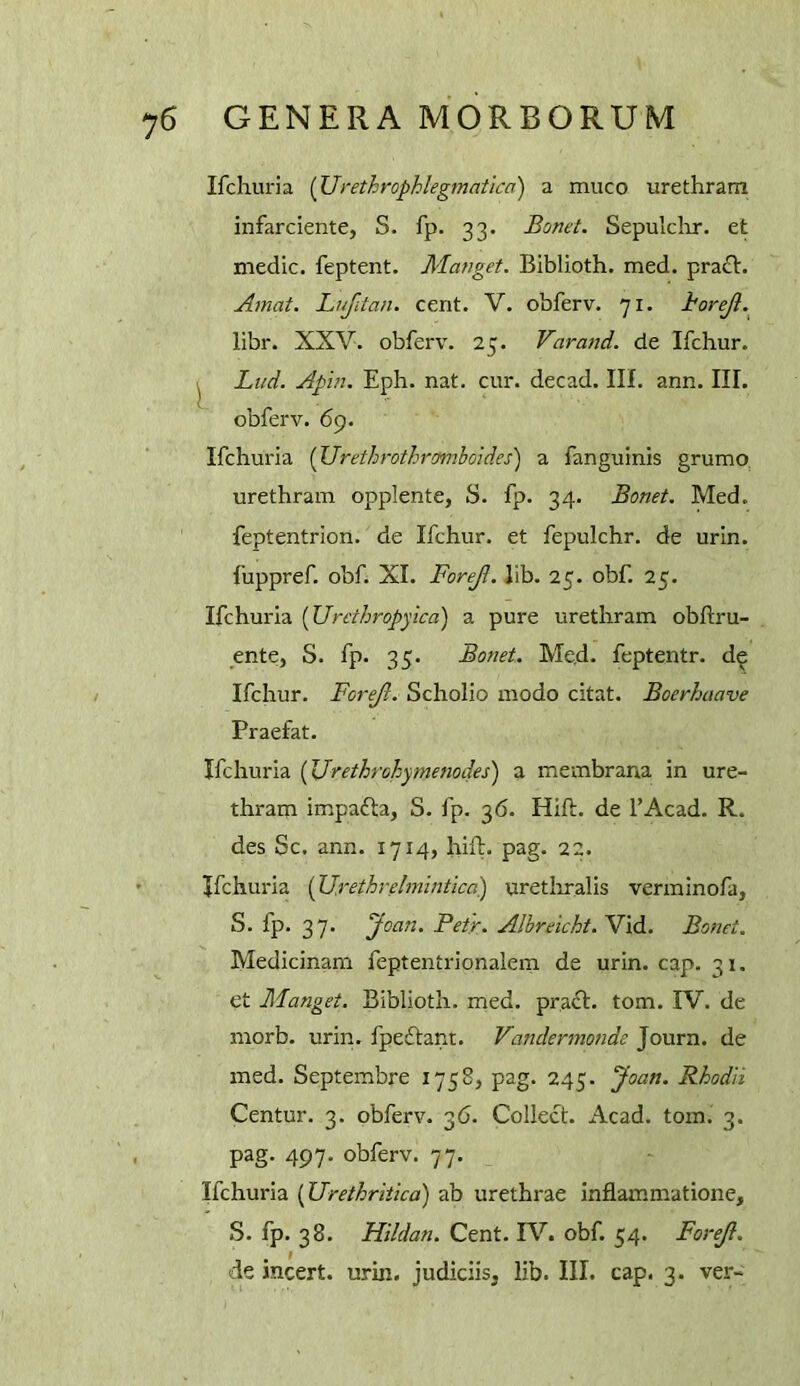 76 GENERA MORBORUM
Ifchuria (Urethrophlegmatica) a muco urethram
infarciente, S. fp. 33. Bonet. Sepulchr. et
medic. feptent. Manget. Biblioth. med. pract.
Amat. Lufitan. cent. V. obferv. 71. Foreft.
libr. XXV. obferv. 25. Varand. de Ifchur.
Lud. Apin. Eph. nat. cur. decad. III. ann. III.
obferv. 69.
Ifchuria (Urethrothromboides) a fanguinis grumo
urethram opplente, S. fp. 34. Bonet. Med.
feptentrion. de Ifchur. et fepulchr. de urin.
fuppref. obf. XI. Foreft. lib. 25. obf. 25.
Ifchuria (Urethropyica) a pure urethram obftru-
ente, S. fp. 35. Bonet. Med. feptentr. de
Ifchur. Foreft. Scholio modo citat. Boerhaave
Praefat.
Ifchuria (Urethrohymenodes) a membrana in ure-
thram impacta, S. fp. 36. Hift. de l'Acad. R.
des Sc. ann. 1714, hift. pag. 22.
Ifchuria (Urethrelmintica) urethralis verminofa,
S. fp. 37. Joan. Petr. Albreicht. Vid. Bonet.
Medicinam feptentrionalem de urin. cap. 31.
et Manget. Biblioth. med. pract. tom. IV. de
morb. urin. fpectant. Vandermonde Journ. de
med. Septembre 1758, pag. 245. Joan. Rhodii
Centur. 3. obferv. 36. Collect. Acad. tom. 3.
pag. 497. obferv. 77.
Ifchuria (Urethritica) ab urethrae inflammatione,
S. fp. 38. Hildan. Cent. IV. obf. 54. Foreft.
de incert. urin. judiciis, lib. III. cap. 3. ver-